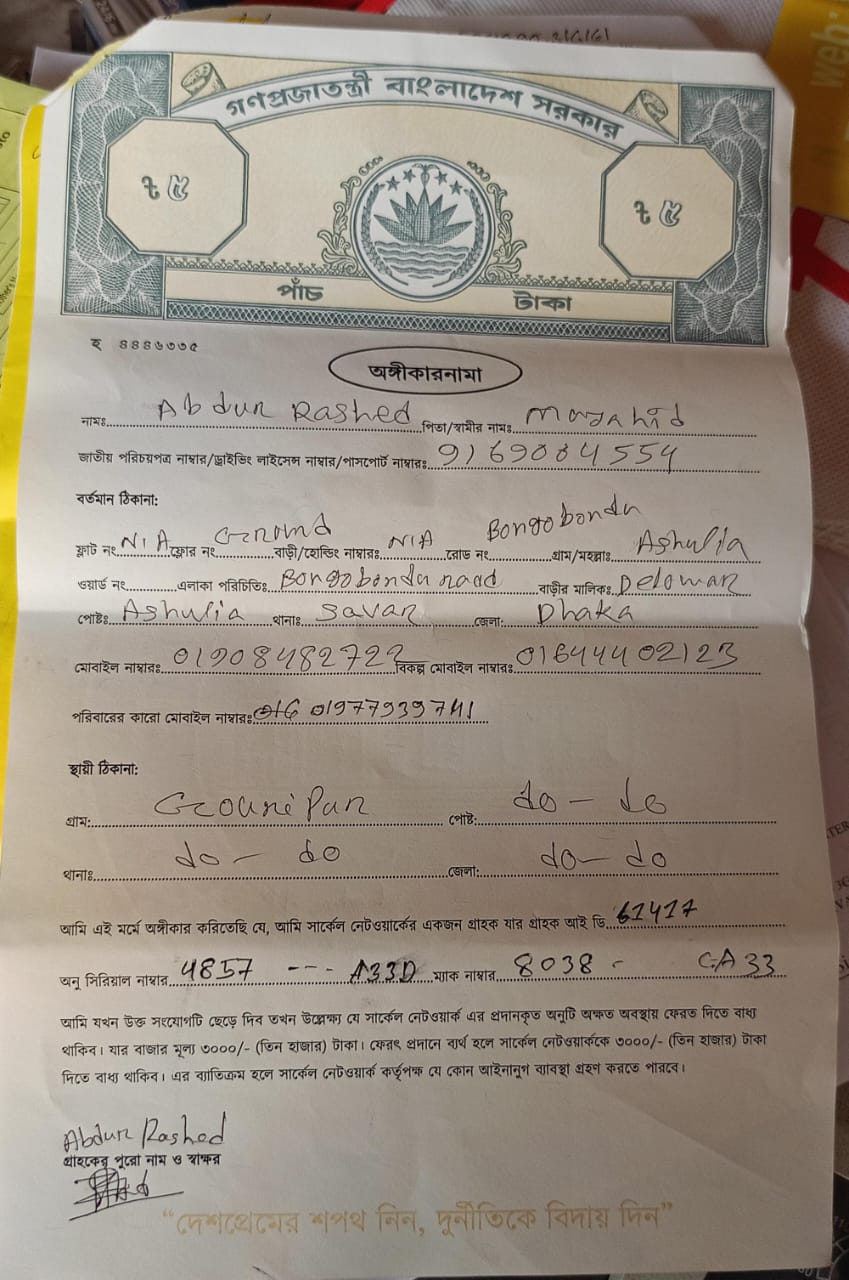 গণপ্রজাতন্ত্রী বাংলাদেশ সরকার
৳ ৫ ৳ ৫
পাঁচ টাকা
ह ৪৪৪৬৩৩৫
অঙ্গীকারনামা
নামঃ Abdur Rashed পিতা/স্বামীর নামঃ
জাতীয় পরিচয়পত্র নাম্বার/ড্রাইভিং লাইসেন্স নাম্বার/পাসপোর্ট নাম্বারঃ 9169084554
বর্তমান ঠিকানা:
ফ্লাট নং N/A ফ্লোর নং Ground বাড়ী/হোল্ডিং নাম্বারঃ N/A রোড নং Bongobondu গ্রাম/মহল্লাঃ Ashulia
ওয়ার্ড নং এলাকা পরিচিতিঃ Bongobondu road বাড়ীর মালিকঃ Delowar
পোষ্টঃ Ashulia থানাঃ Savar জেলা: Dhaka
মোবাইল নাম্বারঃ 01908482722 বিকল্প মোবাইল নাম্বারঃ 01644402123
পরিবারের কারো মোবাইল নাম্বারঃ 01977939741
স্থায়ী ঠিকানা:
গ্রাম: Gouripur পোষ্ট: do - do
থানাঃ do - do জেলা: do - do
আমি এই মর্মে অঙ্গীকার করিতেছি যে, আমি সার্কেল নেটওয়ার্কের একজন গ্রাহক যার গ্রাহক আই ডি 61417
অনু সিরিয়াল নাম্বার 4857 --- A33D ম্যাক নাম্বার 8038 - CA33
আমি যখন উক্ত সংযোগটি ছেড়ে দিব তখন উল্লেক্ষ্য যে সার্কেল নেটওয়ার্ক এর প্রদানকৃত অনুটি অক্ষত অবস্থায় ফেরত দিতে বাধ্য
থাকিব। যার বাজার মূল্য ৩০০০/- (তিন হাজার) টাকা। ফেরৎ প্রদানে ব্যর্থ হলে সার্কেল নেটওয়ার্ককে ৩০০০/- (তিন হাজার) টাকা
দিতে বাধ্য থাকিব। এর ব্যাতিক্রম হলে সার্কেল নেটওয়ার্ক কর্তৃপক্ষ যে কোন আইনানুগ ব্যাবস্থা গ্রহণ করতে পারবে।
Abdur Rashed
গ্রাহকের পুরো নাম ও স্বাক্ষর
“দেশপ্রেমের শপথ নিন, দুর্নীতিকে বিদায় দিন”